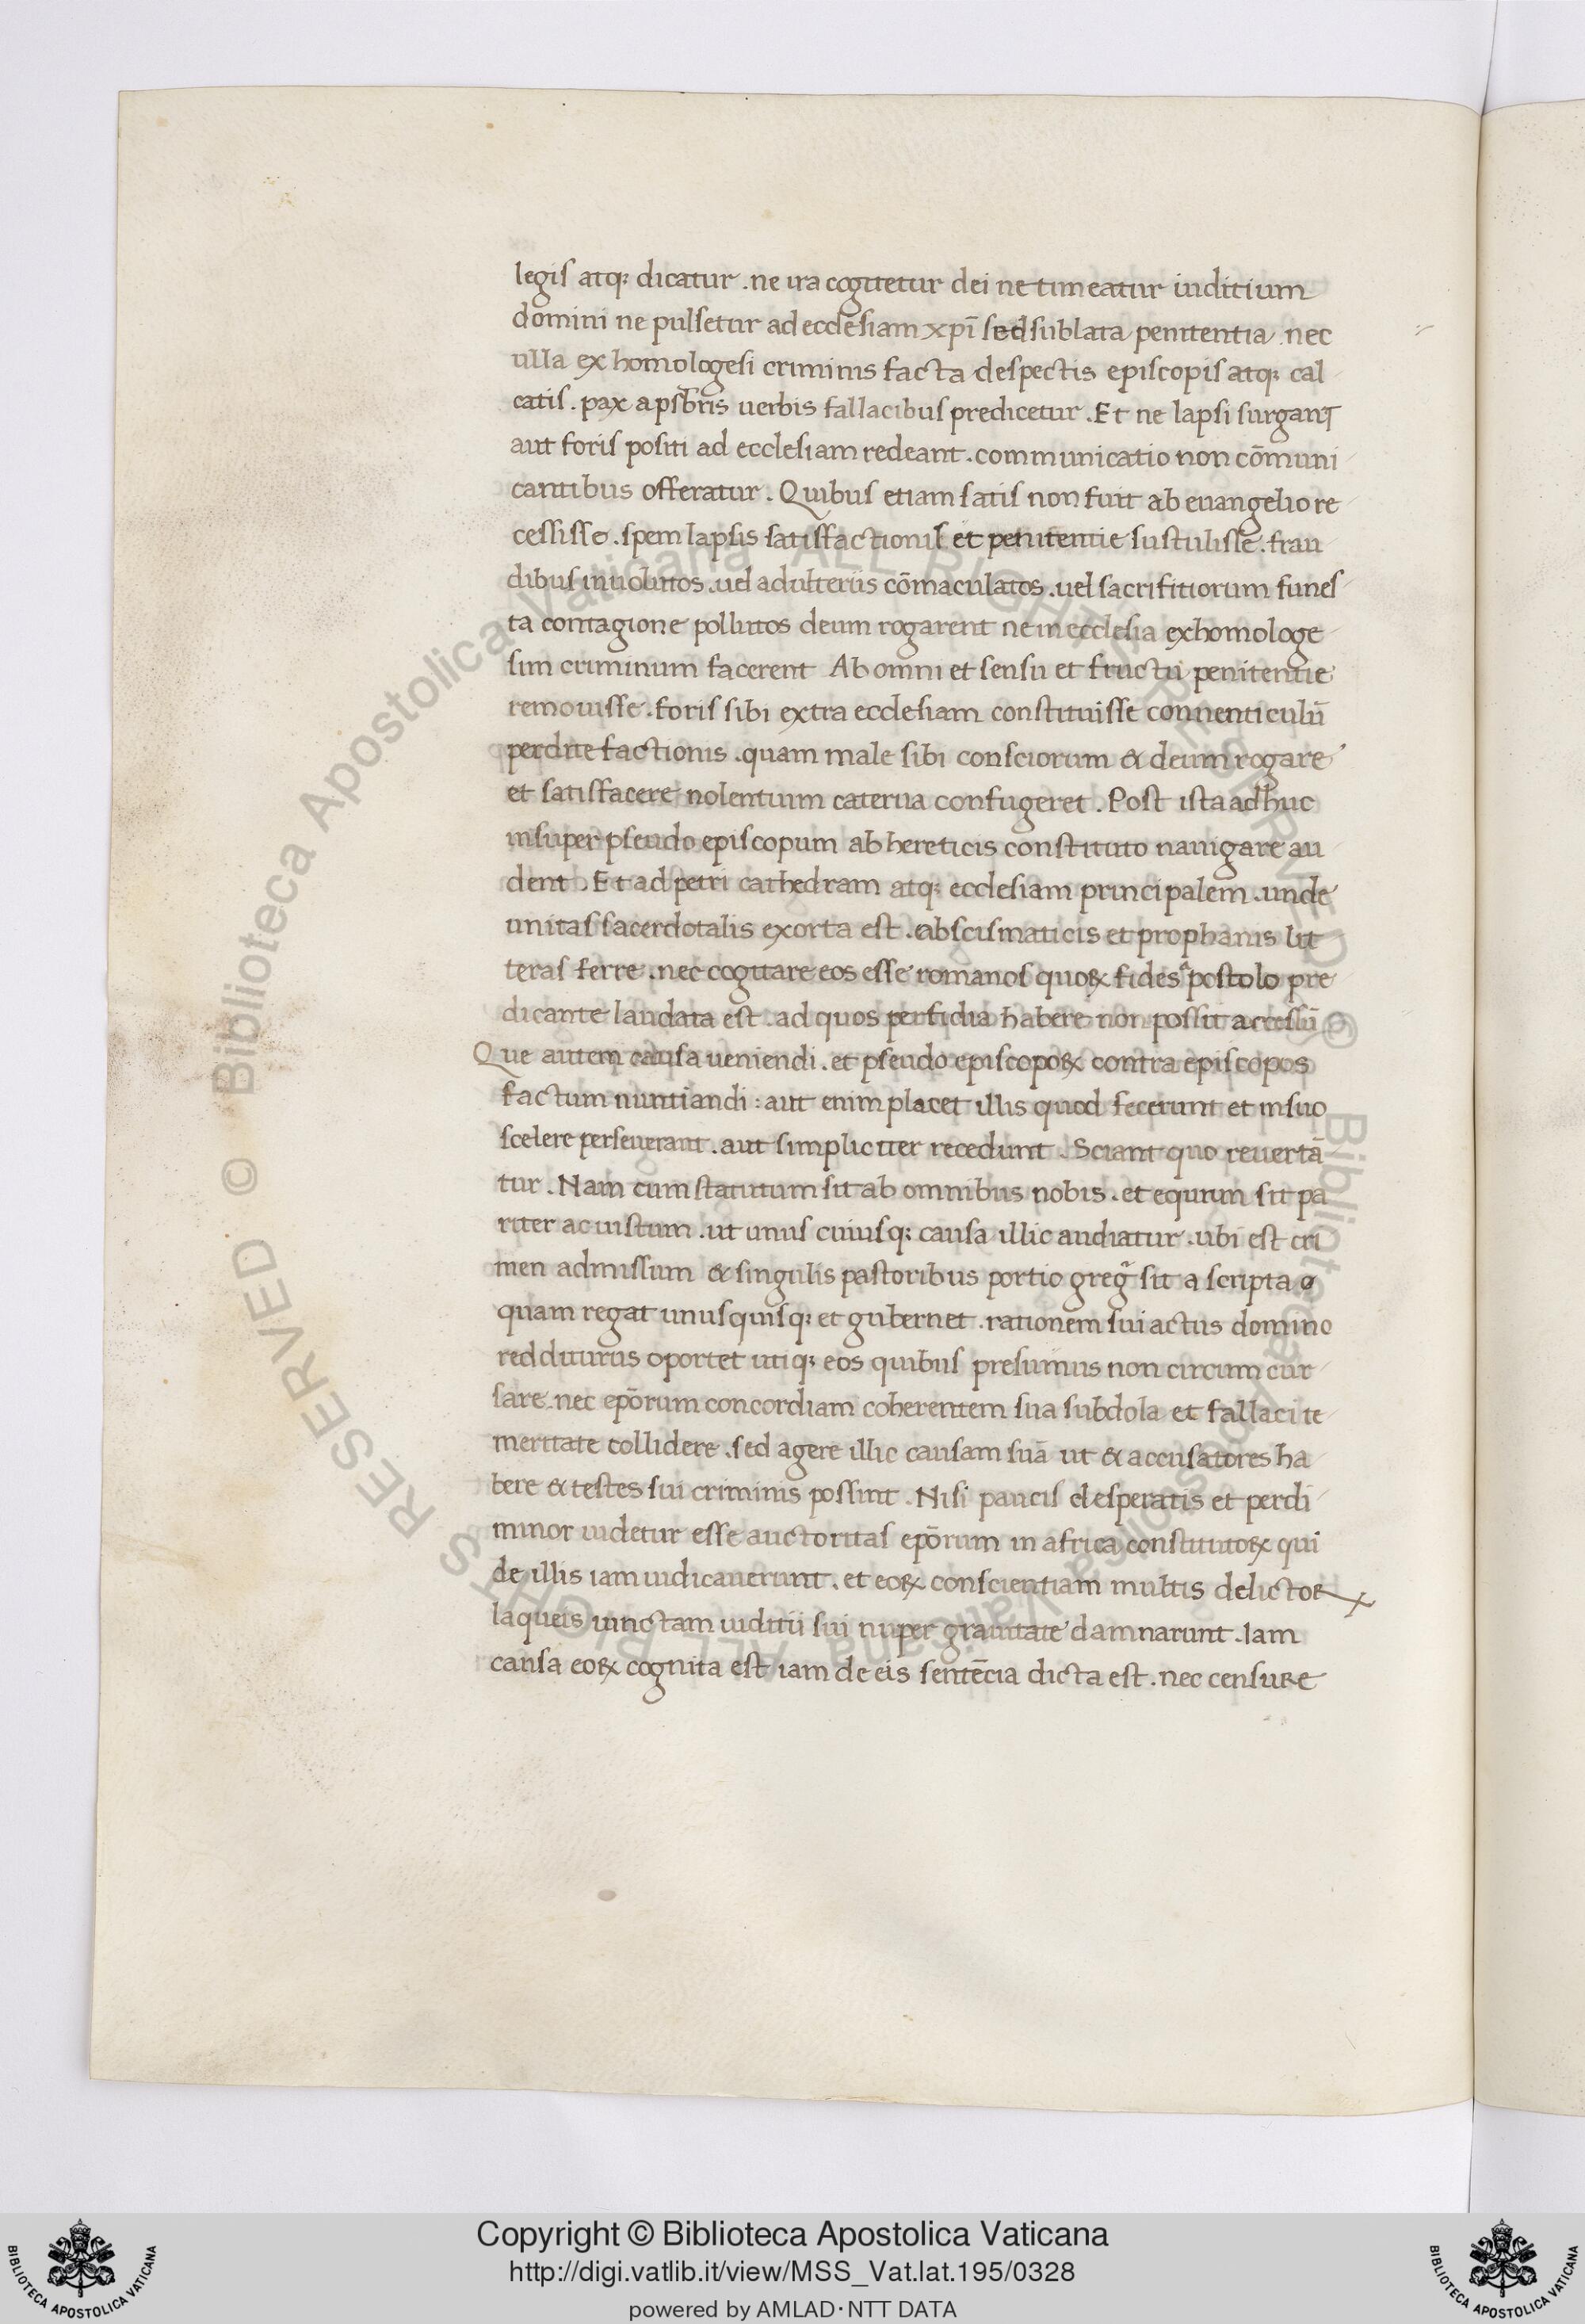 legis atq; dicatur . ne ira cogitetur dei ne timeatur iuditium
domini ne pulsetur ad ecclesiam xpī sed sublata penitentia . nec
ulla ex homologesi criminis facta despectis episcopis atq; cal
catis . pax a pr̄sbris uerbis fallacibus predicetur . Et ne lapsi surgant
aut foris positi ad ecclesiam redeant . communicatio non cōmuni
cantibus offeratur . Quibus etiam satis non fuit ab euangelio re
cessisse . spem lapsis satisfactionis et penitentie sustulisse . frau
dibus inuolutos . uel adulteriis cōmaculatos . uel sacrifitiorum funes
ta contagione pollutos deum rogarent ne in ecclesia exhomologe
sim criminum facerent Ab omni et sensu et fructu penitentie
remouisse . foris sibi extra ecclesiam constituisse conuenticulū
perdite factionis . quam male sibi consciorum & deum rogare
et satisfacere nolentium caterua confugeret . Post ista adhuc
insuper pseudo episcopum ab hereticis constituto nauigare au
dent . Et ad petri cathedram atq; ecclesiam principalem . unde
unitas sacerdotalis exorta est . ab scismaticis et prophanis lit
teras ferre . nec cogitare eos esse romanos quoꝝ fides apostolo pre
dicante laudata est . ad quos perfidia habere non possit accessū
Que autem causa ueniendi . et pseudo episcopoꝝ contra episcopos
factum nuntiandi : aut enim placet illis quod fecerunt et in suo
scelere perseuerant . aut simpliciter recedunt . Sciant quo reuertā
tur . Nam cum statutum sit ab omnibus nobis . et equum sit pa
riter ac iustum . ut unus cuiusq; causa illic audiatur . ubi est cri
men admissum & singulis pastoribus portio greg̃ sit a scripta
quam regat unusquisq; et gubernet . rationem sui actus domino
redditurus oportet utiq; eos quibus presumus non circum cur
sare nec epōrum concordiam coherentem sua subdola et fallaci te
meritate collidere . sed agere illic causam suā ut & accusatores ha
bere & testes sui criminis possint . Nisi paucis desperatis et perdi
minor uidetur esse auctoritas epōrum in africa constitutoꝝ qui
de illis iam iudicauerunt . et eoꝝ conscientiam multis delictoꝝ
laqueis uinctam iuditii sui nuper grauitate damnarunt . Iam
causa eoꝝ cognita est iam de eis sentēcia dicta est . nec censure
Copyright © Biblioteca Apostolica Vaticana
http://digi.vatlib.it/view/MSS_Vat.lat.195/0328
powered by AMLAD·NTT DATA